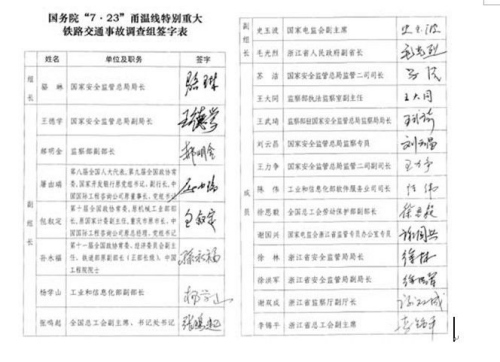 国务院“7·23”甬温线特别重大
铁路交通事故调查组签字表
姓名 单位及职务 签字
组长
骆琳 国家安全监管总局局长 骆琳
副组长
王德学 国家安全监管总局副局长 王德学
郝明金 监察部副部长 郝明金
屠由瑞
第八届全国人大代表、第九届全国政协常委、
国家开发银行原党组书记、副行长、中
国国际工程咨询公司原董事长、党组书记
包叙定
第十届全国政协常委、原机械工业部部长、
原国家计委副主任、重庆市原市长、中
国国际工程咨询公司原总经理、党组书记
包叙定
孙永福
第十一届全国政协常委、经济委员会副主
任、铁道部原副部长（正部长级）、中国
工程院院士
孙永福
杨学山 工业和信息化部副部长
张鸣起 全国总工会副主席、书记处书记 张鸣起
成员
史玉波 国家电监会副主席 史玉波
毛光烈 浙江省人民政府副省长 毛光烈
苏洁 国家安全监管总局监管二司司长 苏洁
王大同 监察部执法监察室副主任 王大同
王武琦 监察部驻国家安全监管总局监察局局长
刘云昌 国家安全监管总局监察专员 刘云昌
王力争 国家安全监管总局监管二司副司长 王力争
陈伟 工业和信息化部软件服务业司司长 陈伟
徐思毅 全国总工会劳动保护部副部长
谢国兴 国家电监会浙江省监管专员办公室专员 谢国兴
徐林 浙江省安全监管局局长 徐林
徐洪军 浙江省安全监管局副局长
谢双成 浙江省监察厅副厅长 谢双成
李锦平 浙江省总工会副主席 李锦平